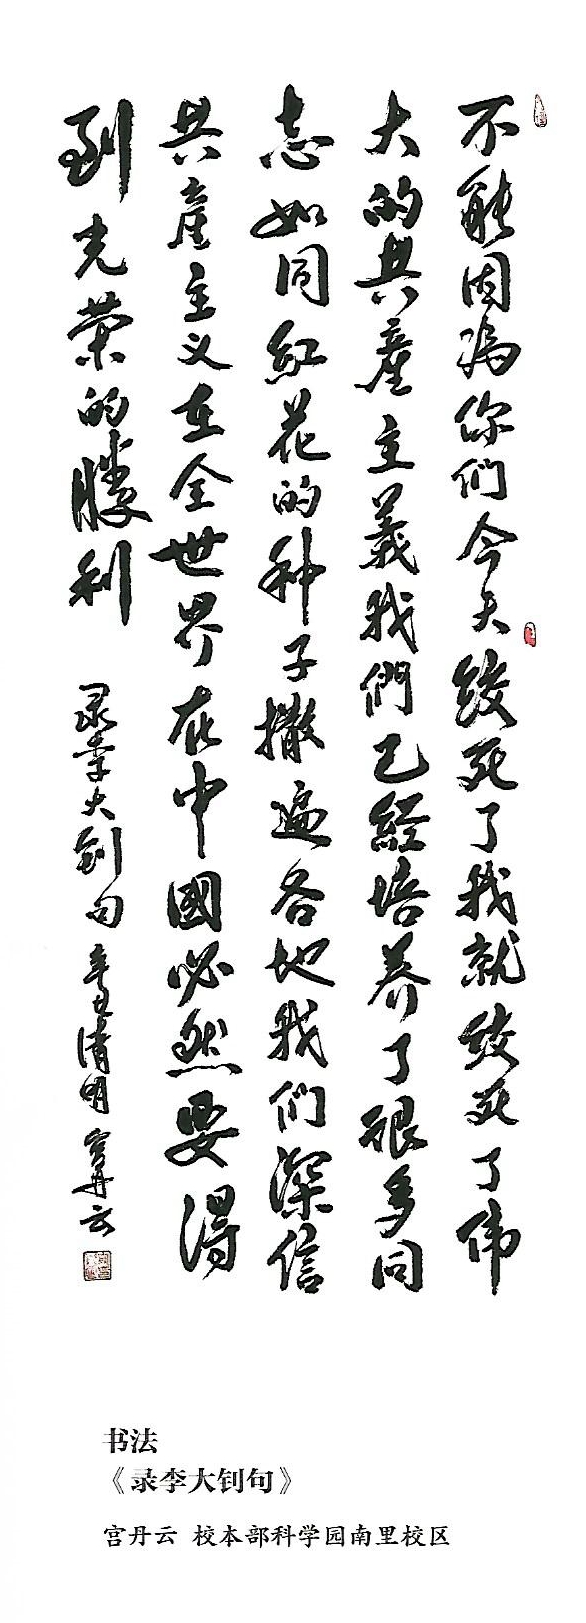 不能因为你们今天绞死了我就绞死了伟
大的共產主義我們已經培养了很多同
志如同紅花的种子撒遍各地我们深信
共產主义在全世界在中國必然要得
到光荣的勝利
录李大钊句 辛丑清明 宫丹云
书法
《录李大钊句》
宫丹云 校本部科学园南里校区